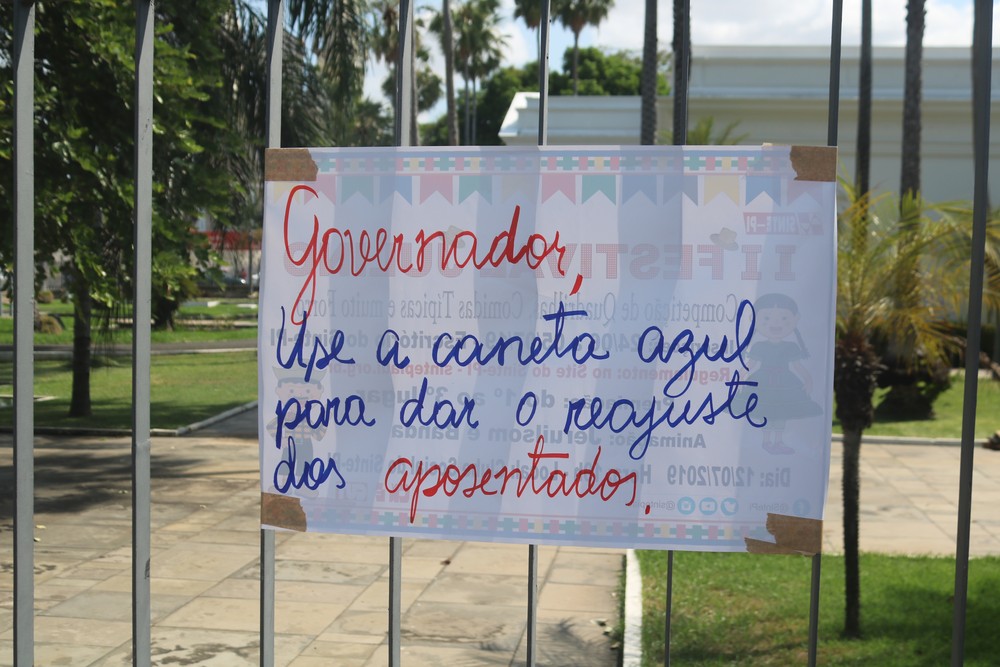 Governador,
Use a caneta azul
para dar o reajuste
dos aposentados.
SINTE-PI
II FESTIVAL
Competição de Quadrilhas, Comidas Típicas e muito Forró
Regulamento: no Site do Sinte-PI - sintepiaui.org.br
Premiação: do 1º ao 3º lugar
Animação: Jeruilsom e Banda
Dia: 12/07/2019